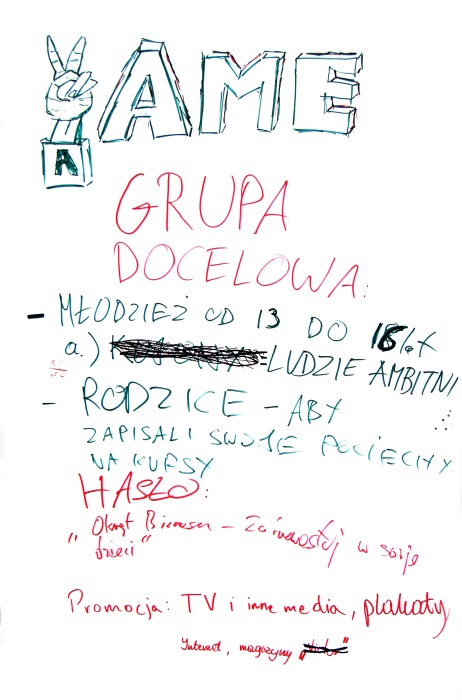 AME
A
GRUPA
DOCELOWA:
- MŁODZIEŻ OD 13 DO 18 lat
a.) LUDZIE AMBITNI
- RODZICE - ABY
ZAPISALI SWOJE POCIECHY
NA KURSY
HASŁO:
"Okręt Biznesu - Zainwestuj w swoje
dzieci"
Promocja: TV i inne media, plakaty
Internet, magazyny